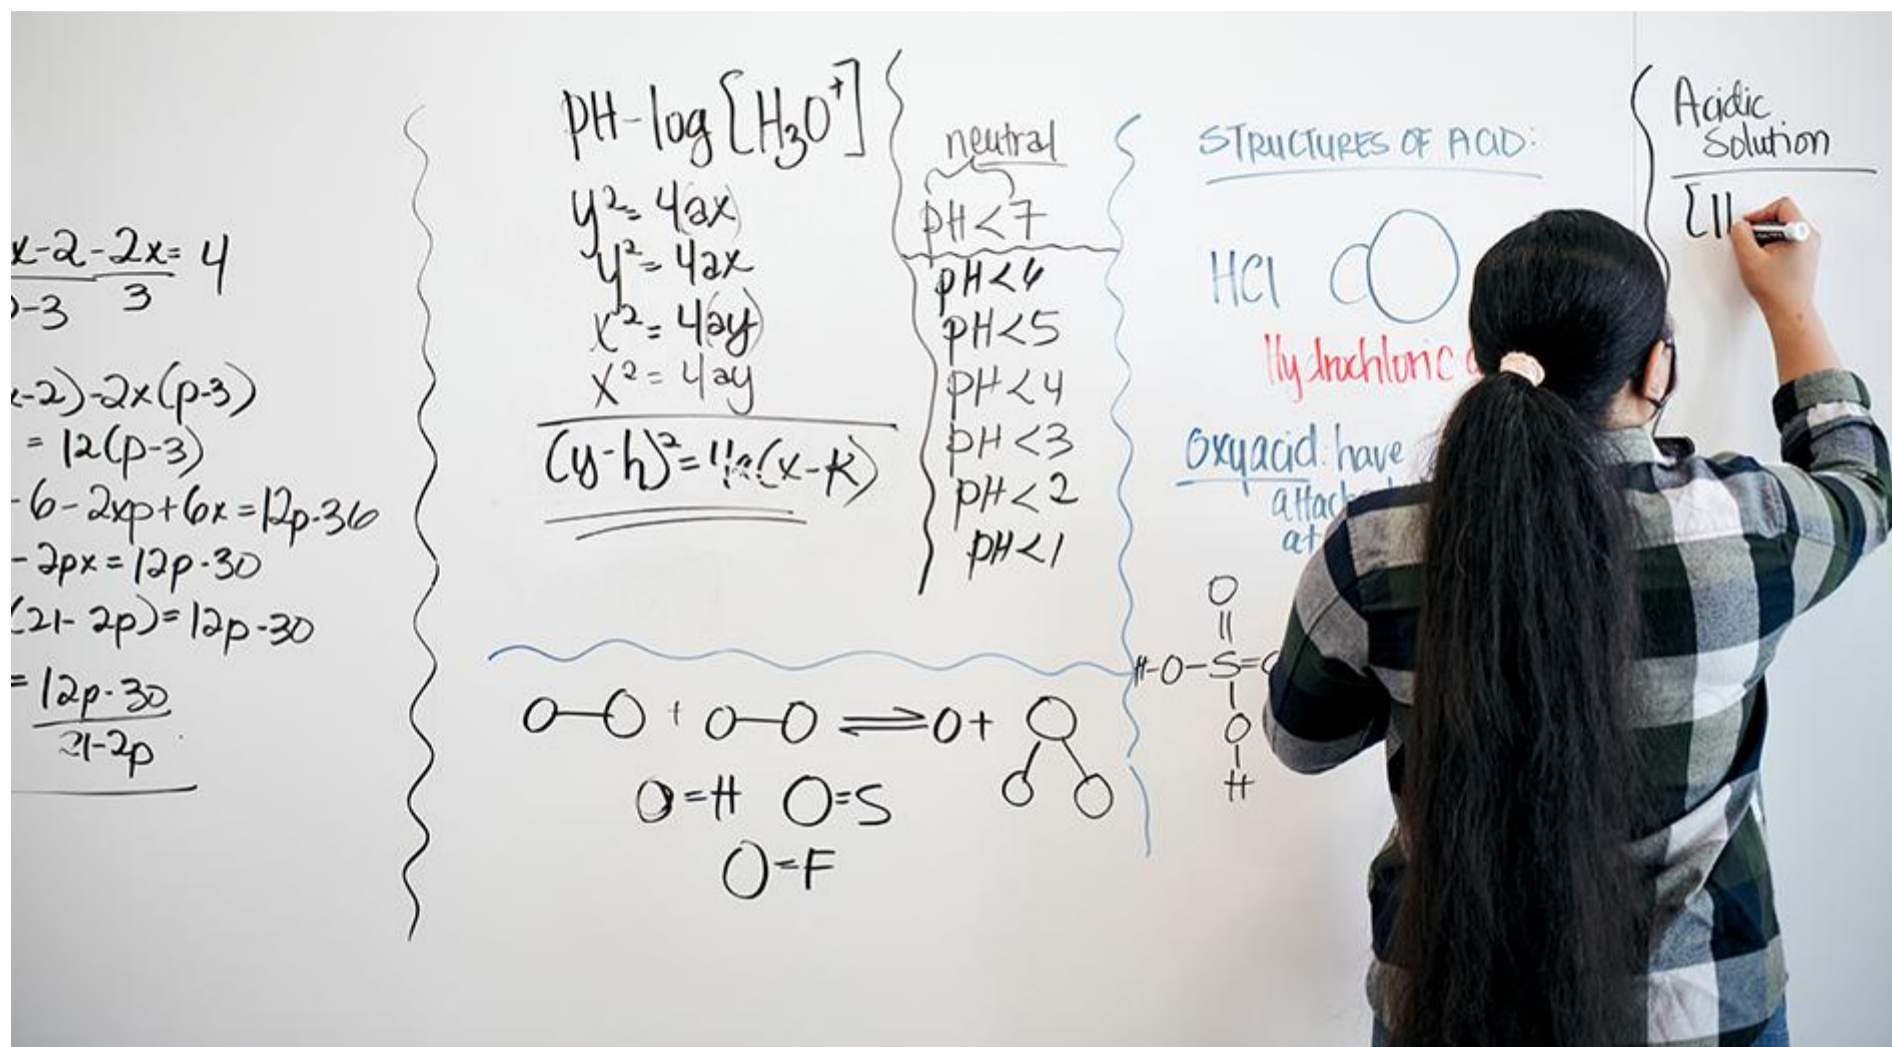 x-2-2x=4
p-3 3
-2)-2x(p-3)
= 12(p-3)
-6-2xp+6x=12p-36
-2px=12p-30
(21-2p)=12p-30
= 12p-30
21-2p
pH-log[H₃O⁺]
y²=4ax
y²=4ax
x²=4ay
x²=4ay
(y-h)²=4a(x-k)
neutral
pH<7
pH<6
pH<5
pH<4
pH<3
pH<2
pH<1
O=H O=S
O=F
STRUCTURES OF ACID:
HCl
Hydrochloric
Oxyacid have
attac
at
O
H-O-S=
O
H
Acidic
Solution